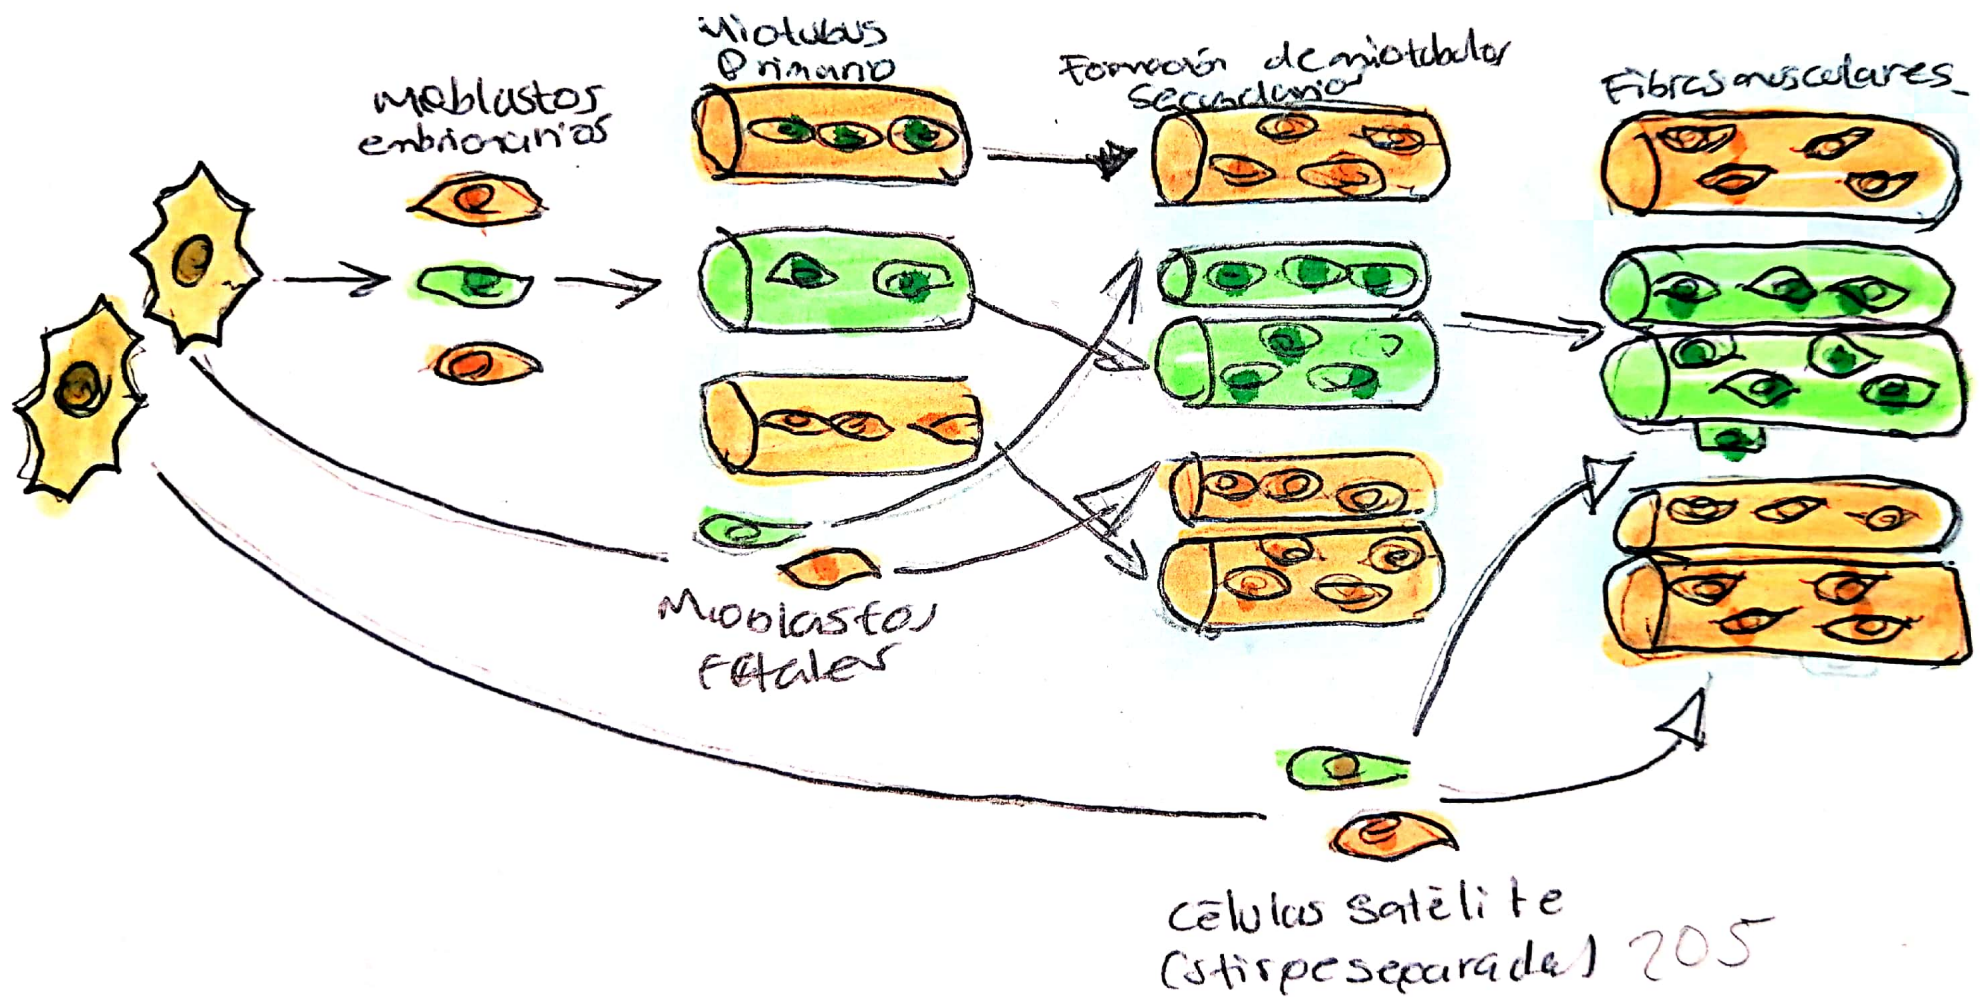 Mioblastos
embrionarios
Miotubus
Primario
Formación de miotubulos
Secundarios
Fibras musculares
Mioblastos
Fetales
Células satélite
(stirpe separada) 205